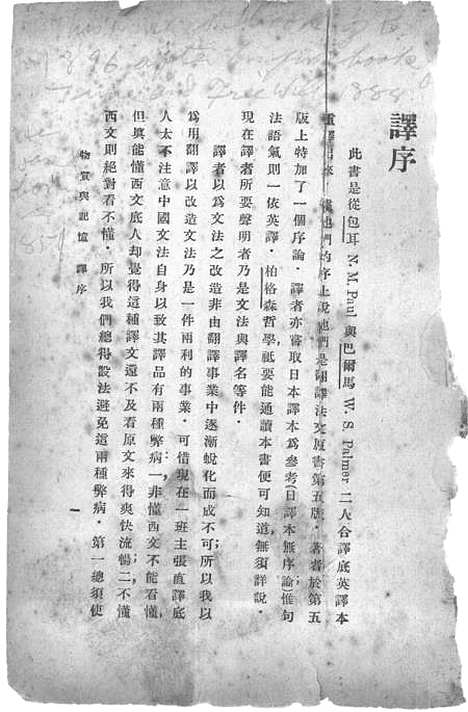 譯序
此書是從包耳 N. M. Paul 與巴爾馬 W. S. Palmer 二人合譯底英譯本
重譯出來，從他們的序上說他們是翻譯法文原書第五版。著者於第五
版上特加了一個序論。譯者亦嘗取日本譯本爲參考(日譯本無序論)惟句
法語氣則一依英譯。柏格森哲學祇要能通讀本書便可知道，無須詳說。
現在譯者所要聲明者乃是文法與譯名等件。
譯者以爲文法之改造非由翻譯事業中逐漸蛻化而成不可；所以我以
爲用翻譯以改造文法乃是一件兩利的事業。可惜現在一班主張直譯底
人太不注意中國文法自身以致其譯品有兩種弊病：一非懂西文不能看懂，
但與能懂西文底人却覺得這種譯文還不及看原文來得爽快流暢；二不懂
西文則絕對看不懂。所以我們總得設法避免這兩種弊病。第一總須使
物質與記憶 譯序
一
1896